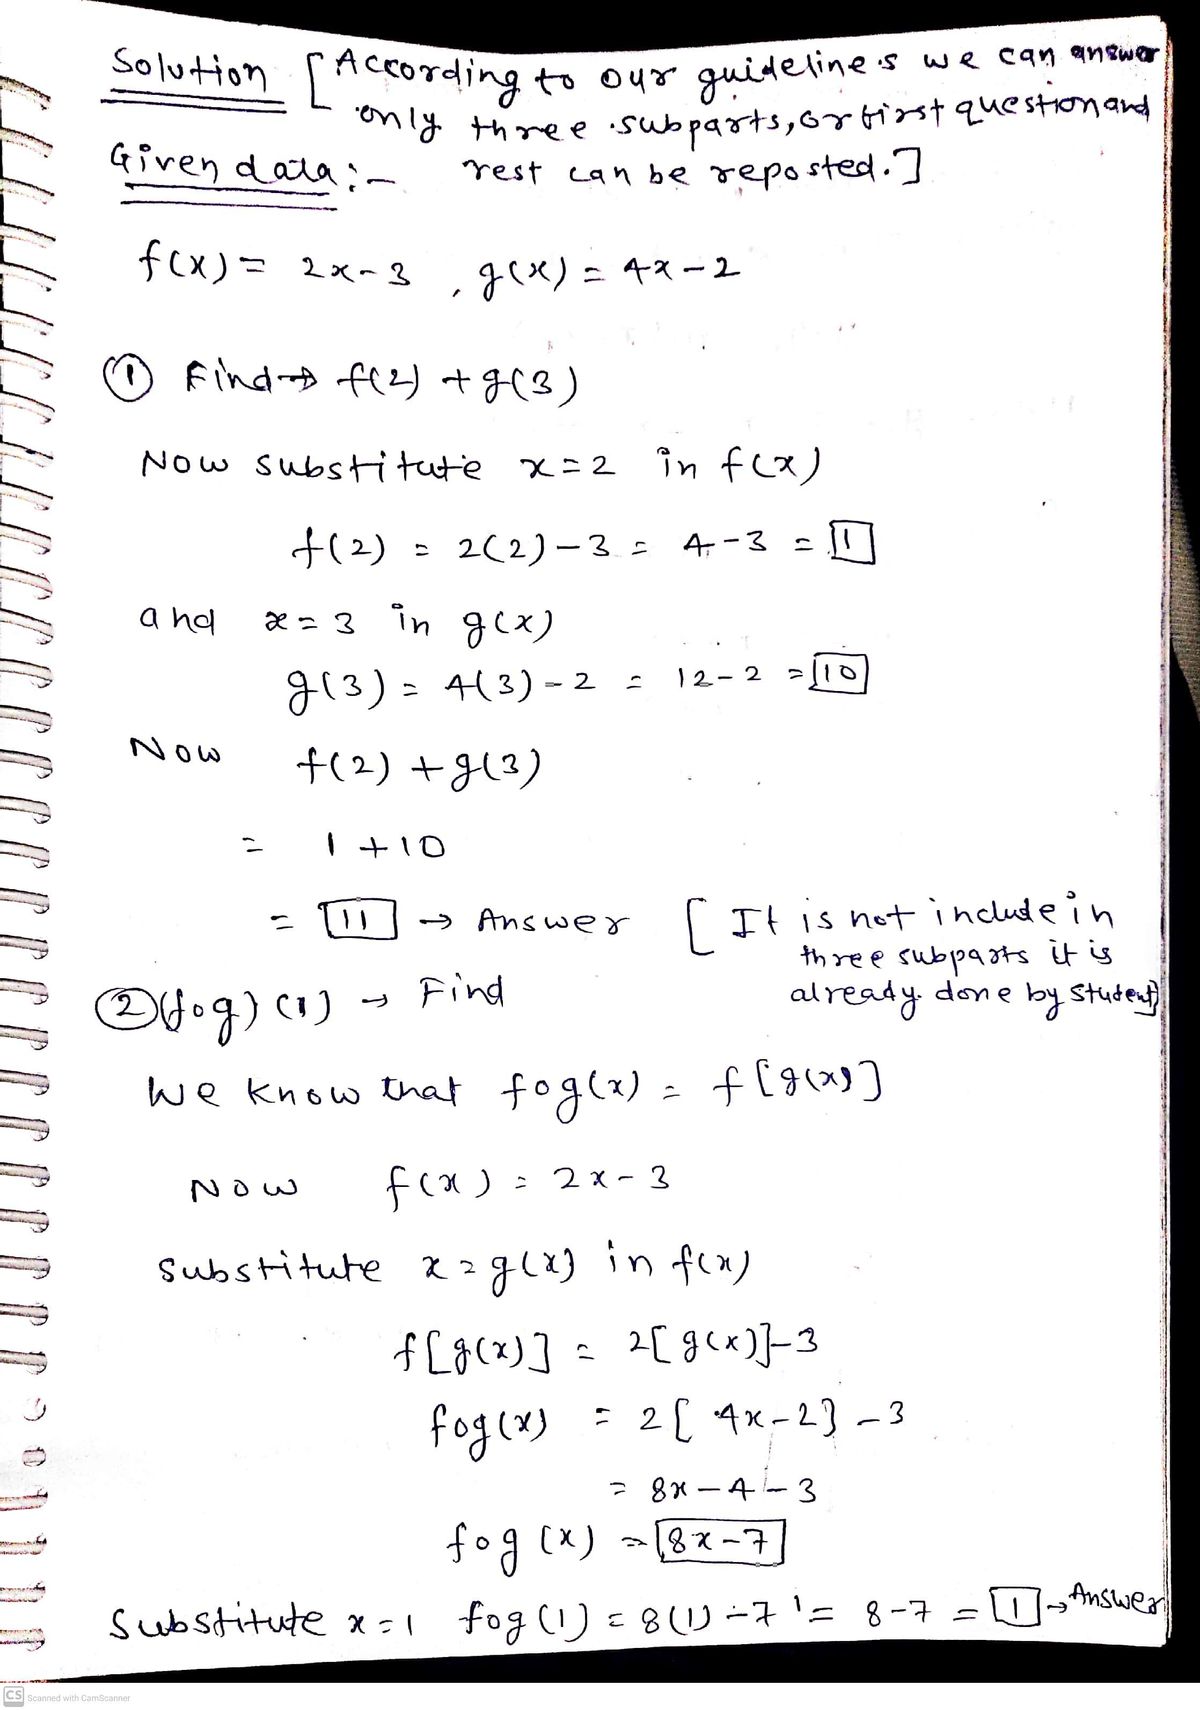 Solution [According to our guidelines we can answer
only three subparts, or first question and
Given data:- rest can be reposted.]
f(x) = 2x-3 , g(x) = 4x-2
① Find→ f(2) + g(3)
Now substitute x=2 in f(x)
f(2) = 2(2)-3 = 4-3 = 1
and x=3 in g(x)
g(3) = 4(3)-2 = 12-2 = 10
Now f(2) + g(3)
= 1+10
= 11 → Answer [It is not include in
three subparts it is
already done by student]
② (fog)(1) → Find
We know that fog(x) = f[g(x)]
Now f(x) = 2x-3
substitute x=g(x) in f(x)
f[g(x)] = 2[g(x)]-3
fog(x) = 2[4x-2]-3
= 8x-4-3
fog(x) = 8x-7
Substitute x=1 fog(1) = 8(1)-7 = 8-7 = 1 → Answer
CS Scanned with CamScanner